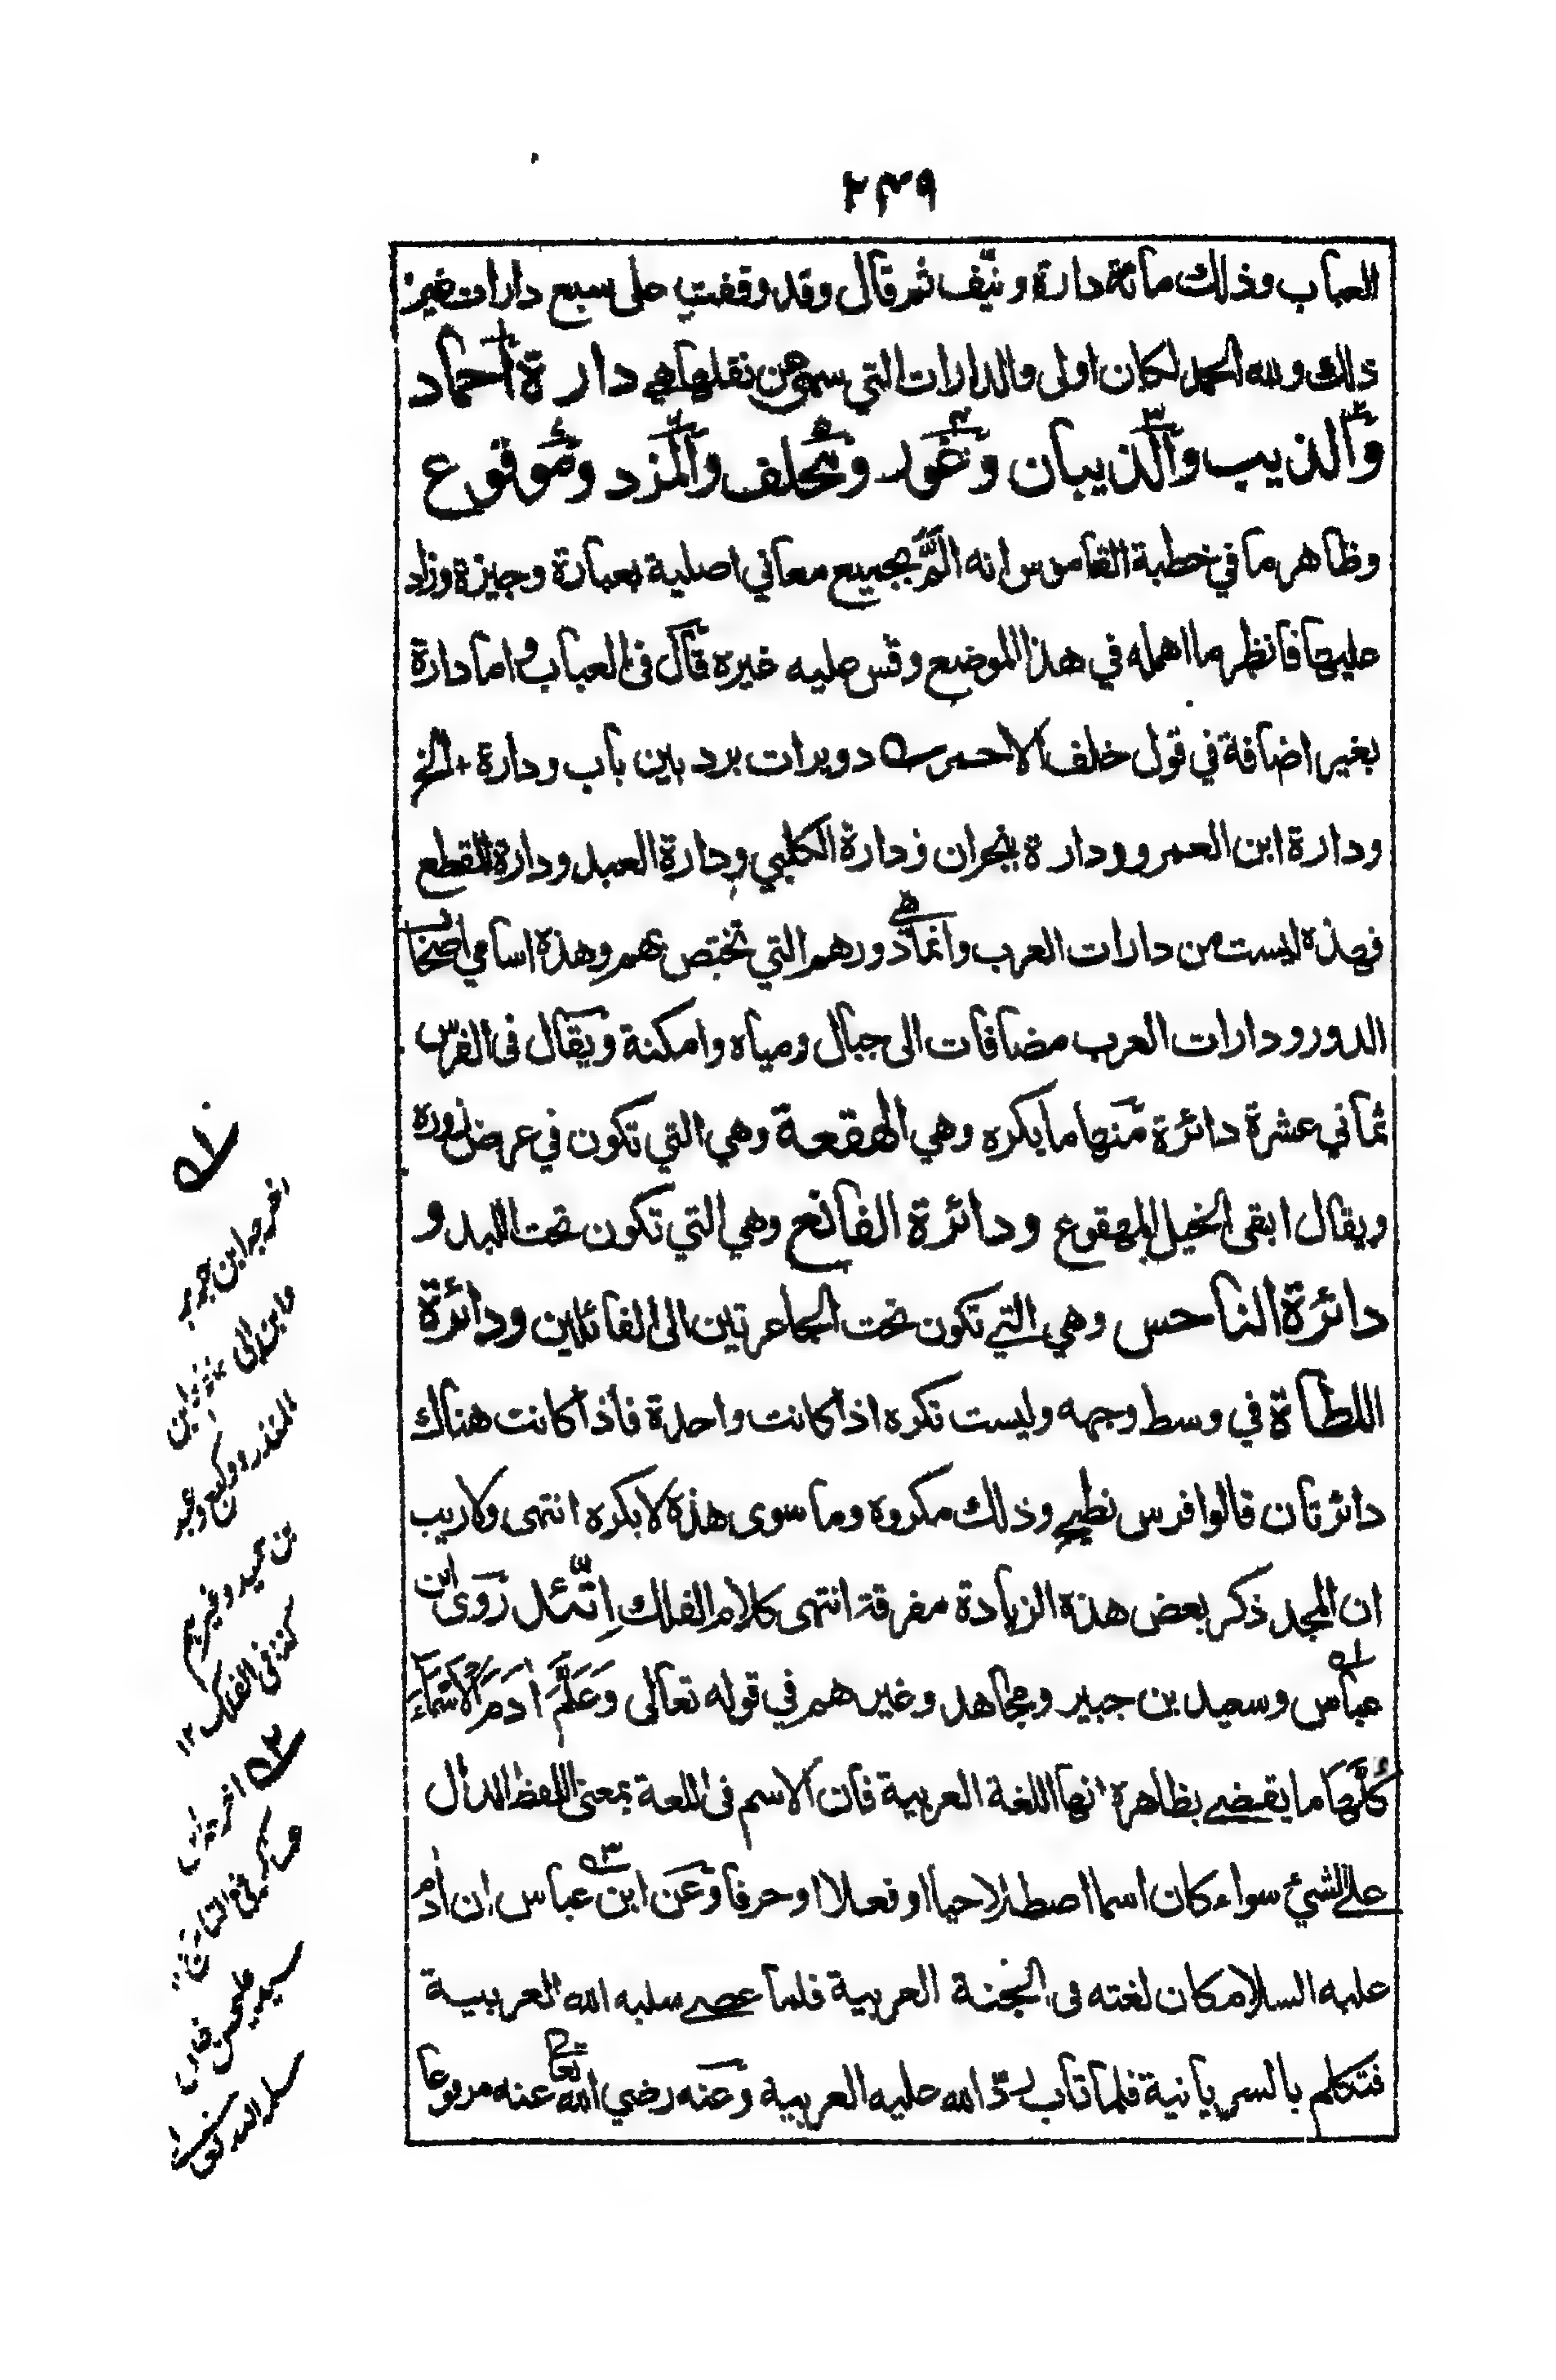 ۲۴۹
العباب وذلك مائة دارة ونيّف ثم قال وقد وقفت على سبع دارات غير
ذلك ولله الحمد لكان اولى والدارات التي سهى عن نقلها هي دارة احماد
والذيب والذيبان وغور ومحلف والمزد وموقوع
وظاهر ما في خطبة القاموس انه المّ بجميع معاني اصلية بعبارة وجيزة وزاد
عليها فانظر ما اهمله في هذا الموضع وقس عليه غيره قال فى العباب واما دارة
بغير اضافة في قول خلف الاحمر دويرات برد بين باب ودارة + الخ
ودارة ابن العمرو ودارة نجران ودارة الكلبي ودارة العبد ودارة المقطع
فهذه ليست من دارات العرب وانما هي دورهم التي تختص بهم وهذه اسامي اصحاب
الدور ودارات العرب مضافات الى جبال ومياه وامكنة ويقال فى الفرس
ثماني عشرة دائرة منها ما يكره وهي الهقعة وهي التي تكون في عرض زوره
ويقال ابقى الخيل المهقوع ودائرة القالع وهي التي تكون تحت اللبد و
دائرة الناحس وهي التي تكون تحت الجاعرتين الى الفائلين ودائرة
اللطاة في وسط وجهه وليست تكره اذا كانت واحدة فاذا كانت هناك
دائرتان قالوا فرس نطيح وذلك مكروه وما سوى هذه لا يكره انتهى ولا ريب
ان المجد ذكر بعض هذه الزيادة مفرقة انتهى كلام الفلك اِتّئد رَوى ابن
عباس وسعيد بن جبير ومجاهد وغيرهم في قوله تعالى وَعَلَّمَ اٰدَمَ الْاَسْمَآءَ
كُلَّهَا ما يقضے بظاهره انها اللغة العربية فان الاسم فى اللغة بمعنى اللفظ الدال
علے الشيئ سواء كان اسما اصطلاحيا او فعلا او حرفا وَعَن ابن عباس ان اٰدم
عليه السلام كان لغته فى الجنة العربية فلما عصے سلبه الله العربية
فتكلم بالسريانية فلما تاب ردّ الله عليه العربية وعنه رضي الله تعالى عنه مرفوعا
اخرجه ابن جرير
وابن ابى
المنذر ووكيع وعبد
بن حميد وغيرهم
كذا فى الفلك ۱۲